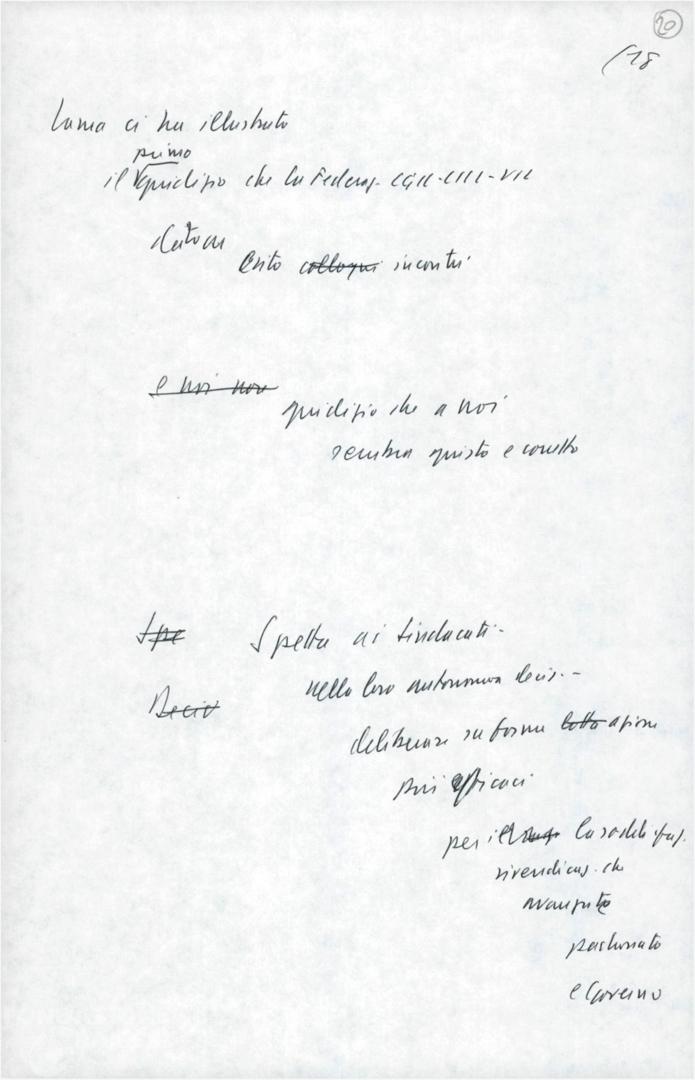 20
(18
Lama ci ha illustrato
primo
il giudizio che la Federaz. CGIL-CISL-UIL
dato su
esito colloqui incontri
e noi non
giudizio che a noi
sembra giusto e corretto
Spe Spetta ai sindacati -
nella loro autonoma decis. -
Deciv
deliberare su forme lotta azione
più efficaci
per il la soddisfaz.
rivendicaz. che
avanzate
padronato
e Governo